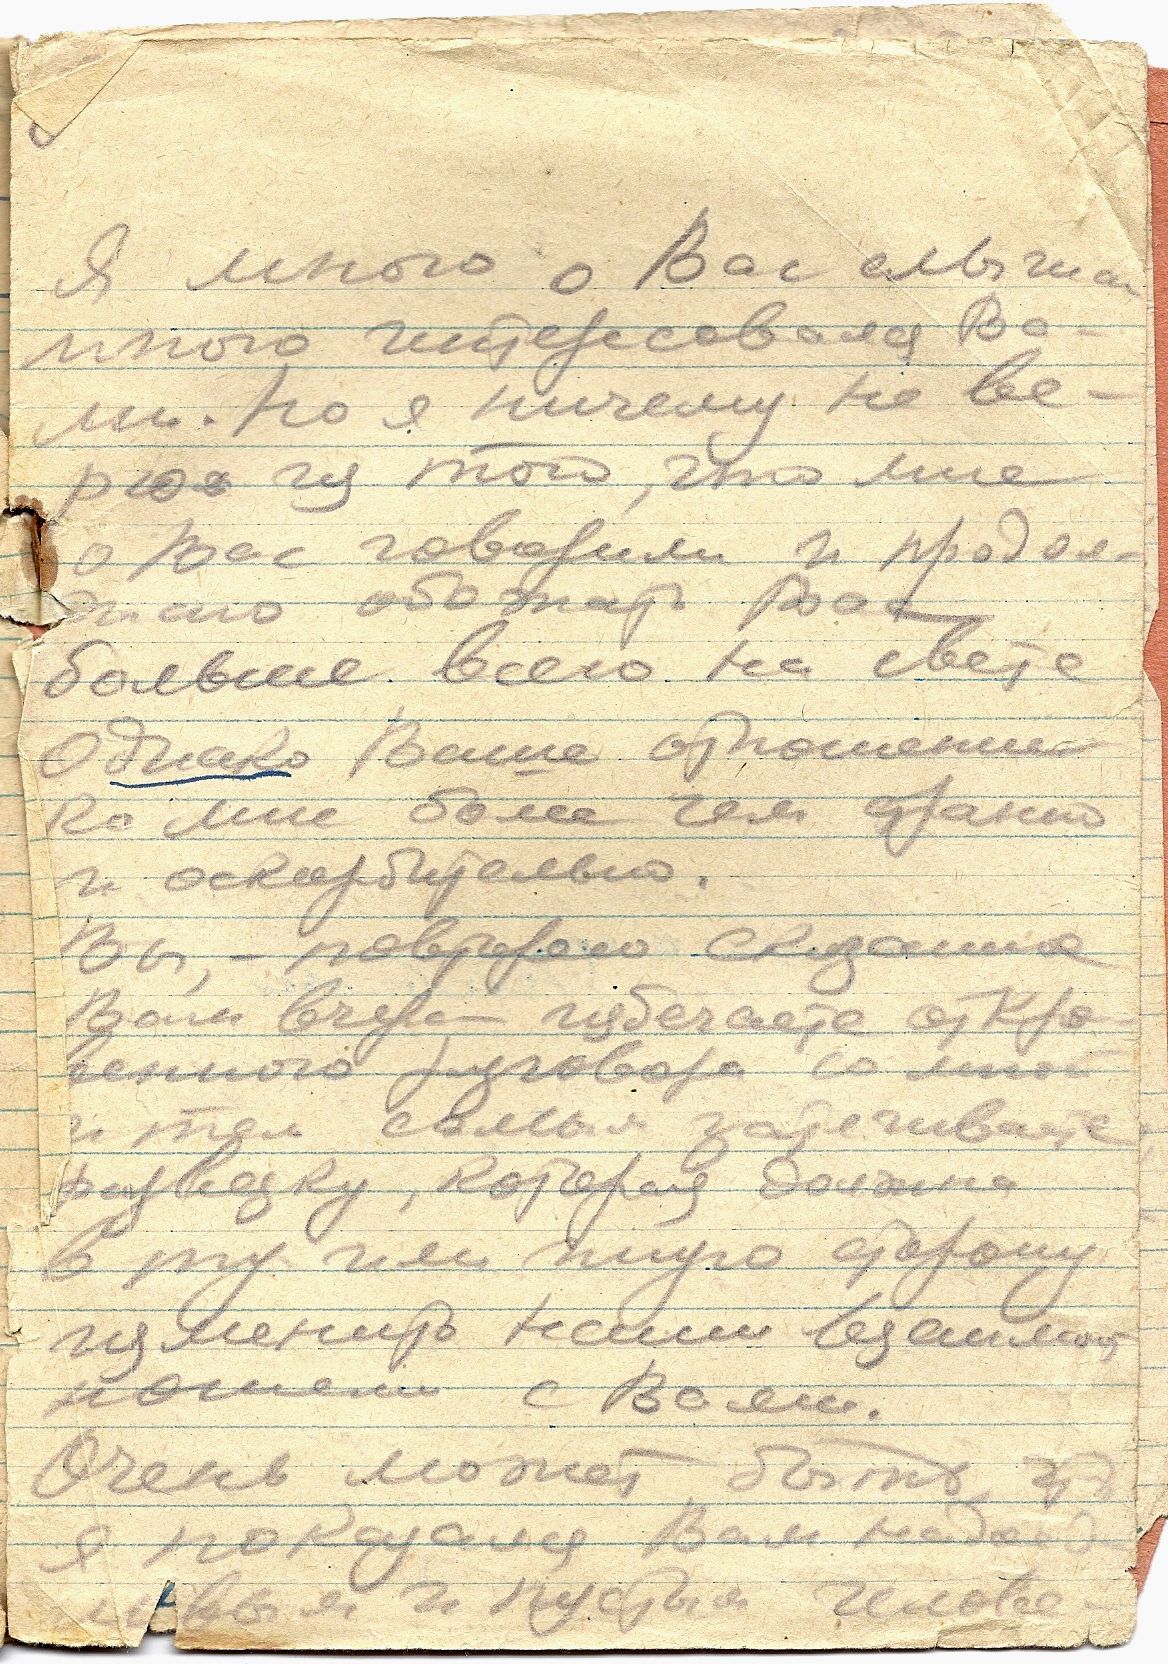 Я много о Вас слышал
много интересовался Ва-
ми. Но я ничему не ве-
рю из того, что мне
о Вас говорили и продол-
жаю обожать Вас
больше всего на свете
Однако Ваше отношение
ко мне более чем странно
и оскорбительно.
Вы, - повторяю сказанное
Вам вчера избегаете откро-
венного разговора со мной
и тем самым затягиваете
развязку, которая должна
в ту или иную сторону
изменить наши взаимоот
ношения с Вами.
Очень может быть, что
я показался Вам надоед
ливым и пустым челове-